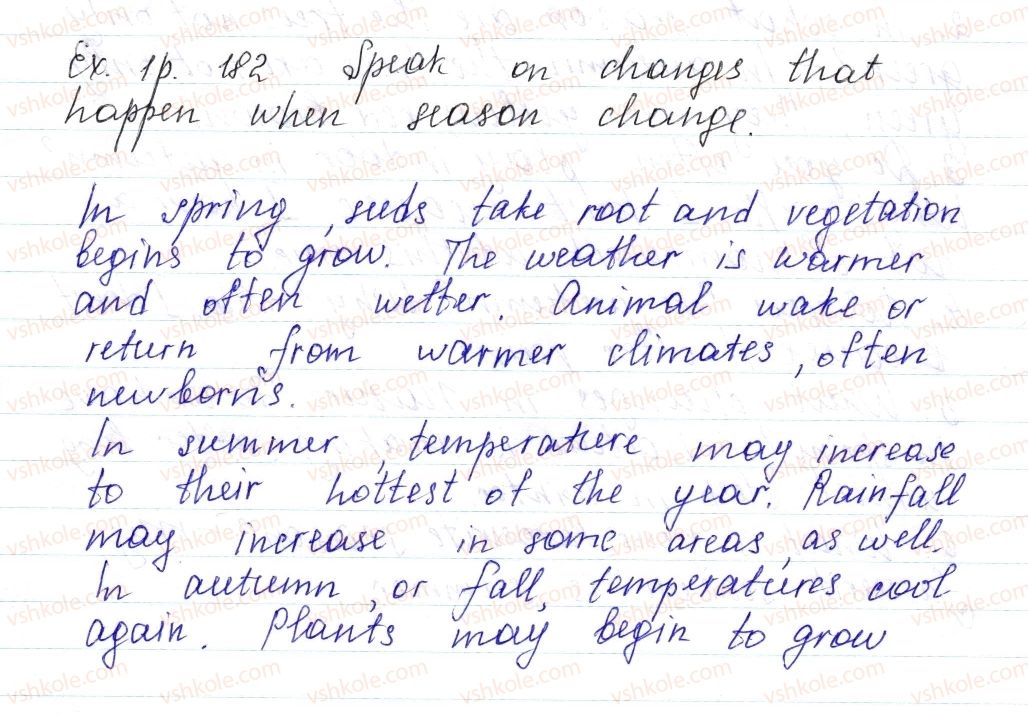 Ex. 1 p. 182 Speak on changes that
happen when season change.
In spring, seeds take root and vegetation
begins to grow. The weather is warmer
and often wetter. Animal wake or
return from warmer climates, often
newborns.
In summer, temperature may increase
to their hottest of the year. Rainfall
may increase in some areas, as well.
In autumn, or fall, temperatures cool
again. Plants may begin to grow
vshkole.com